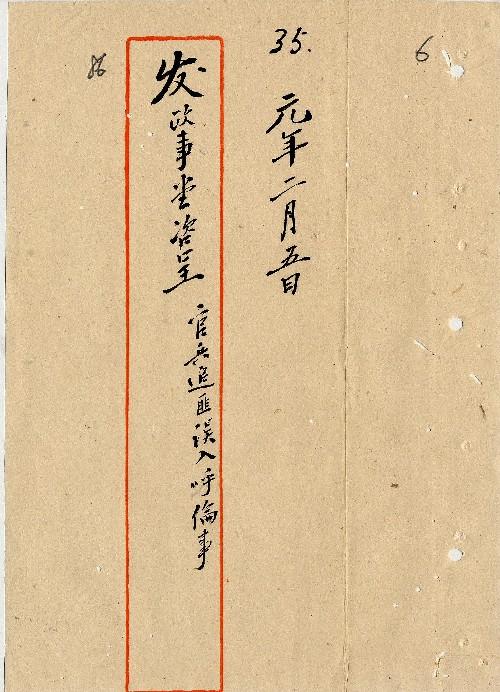 6
35.
元年二月五日
发政事堂咨呈
官兵追匪误入呼倫事